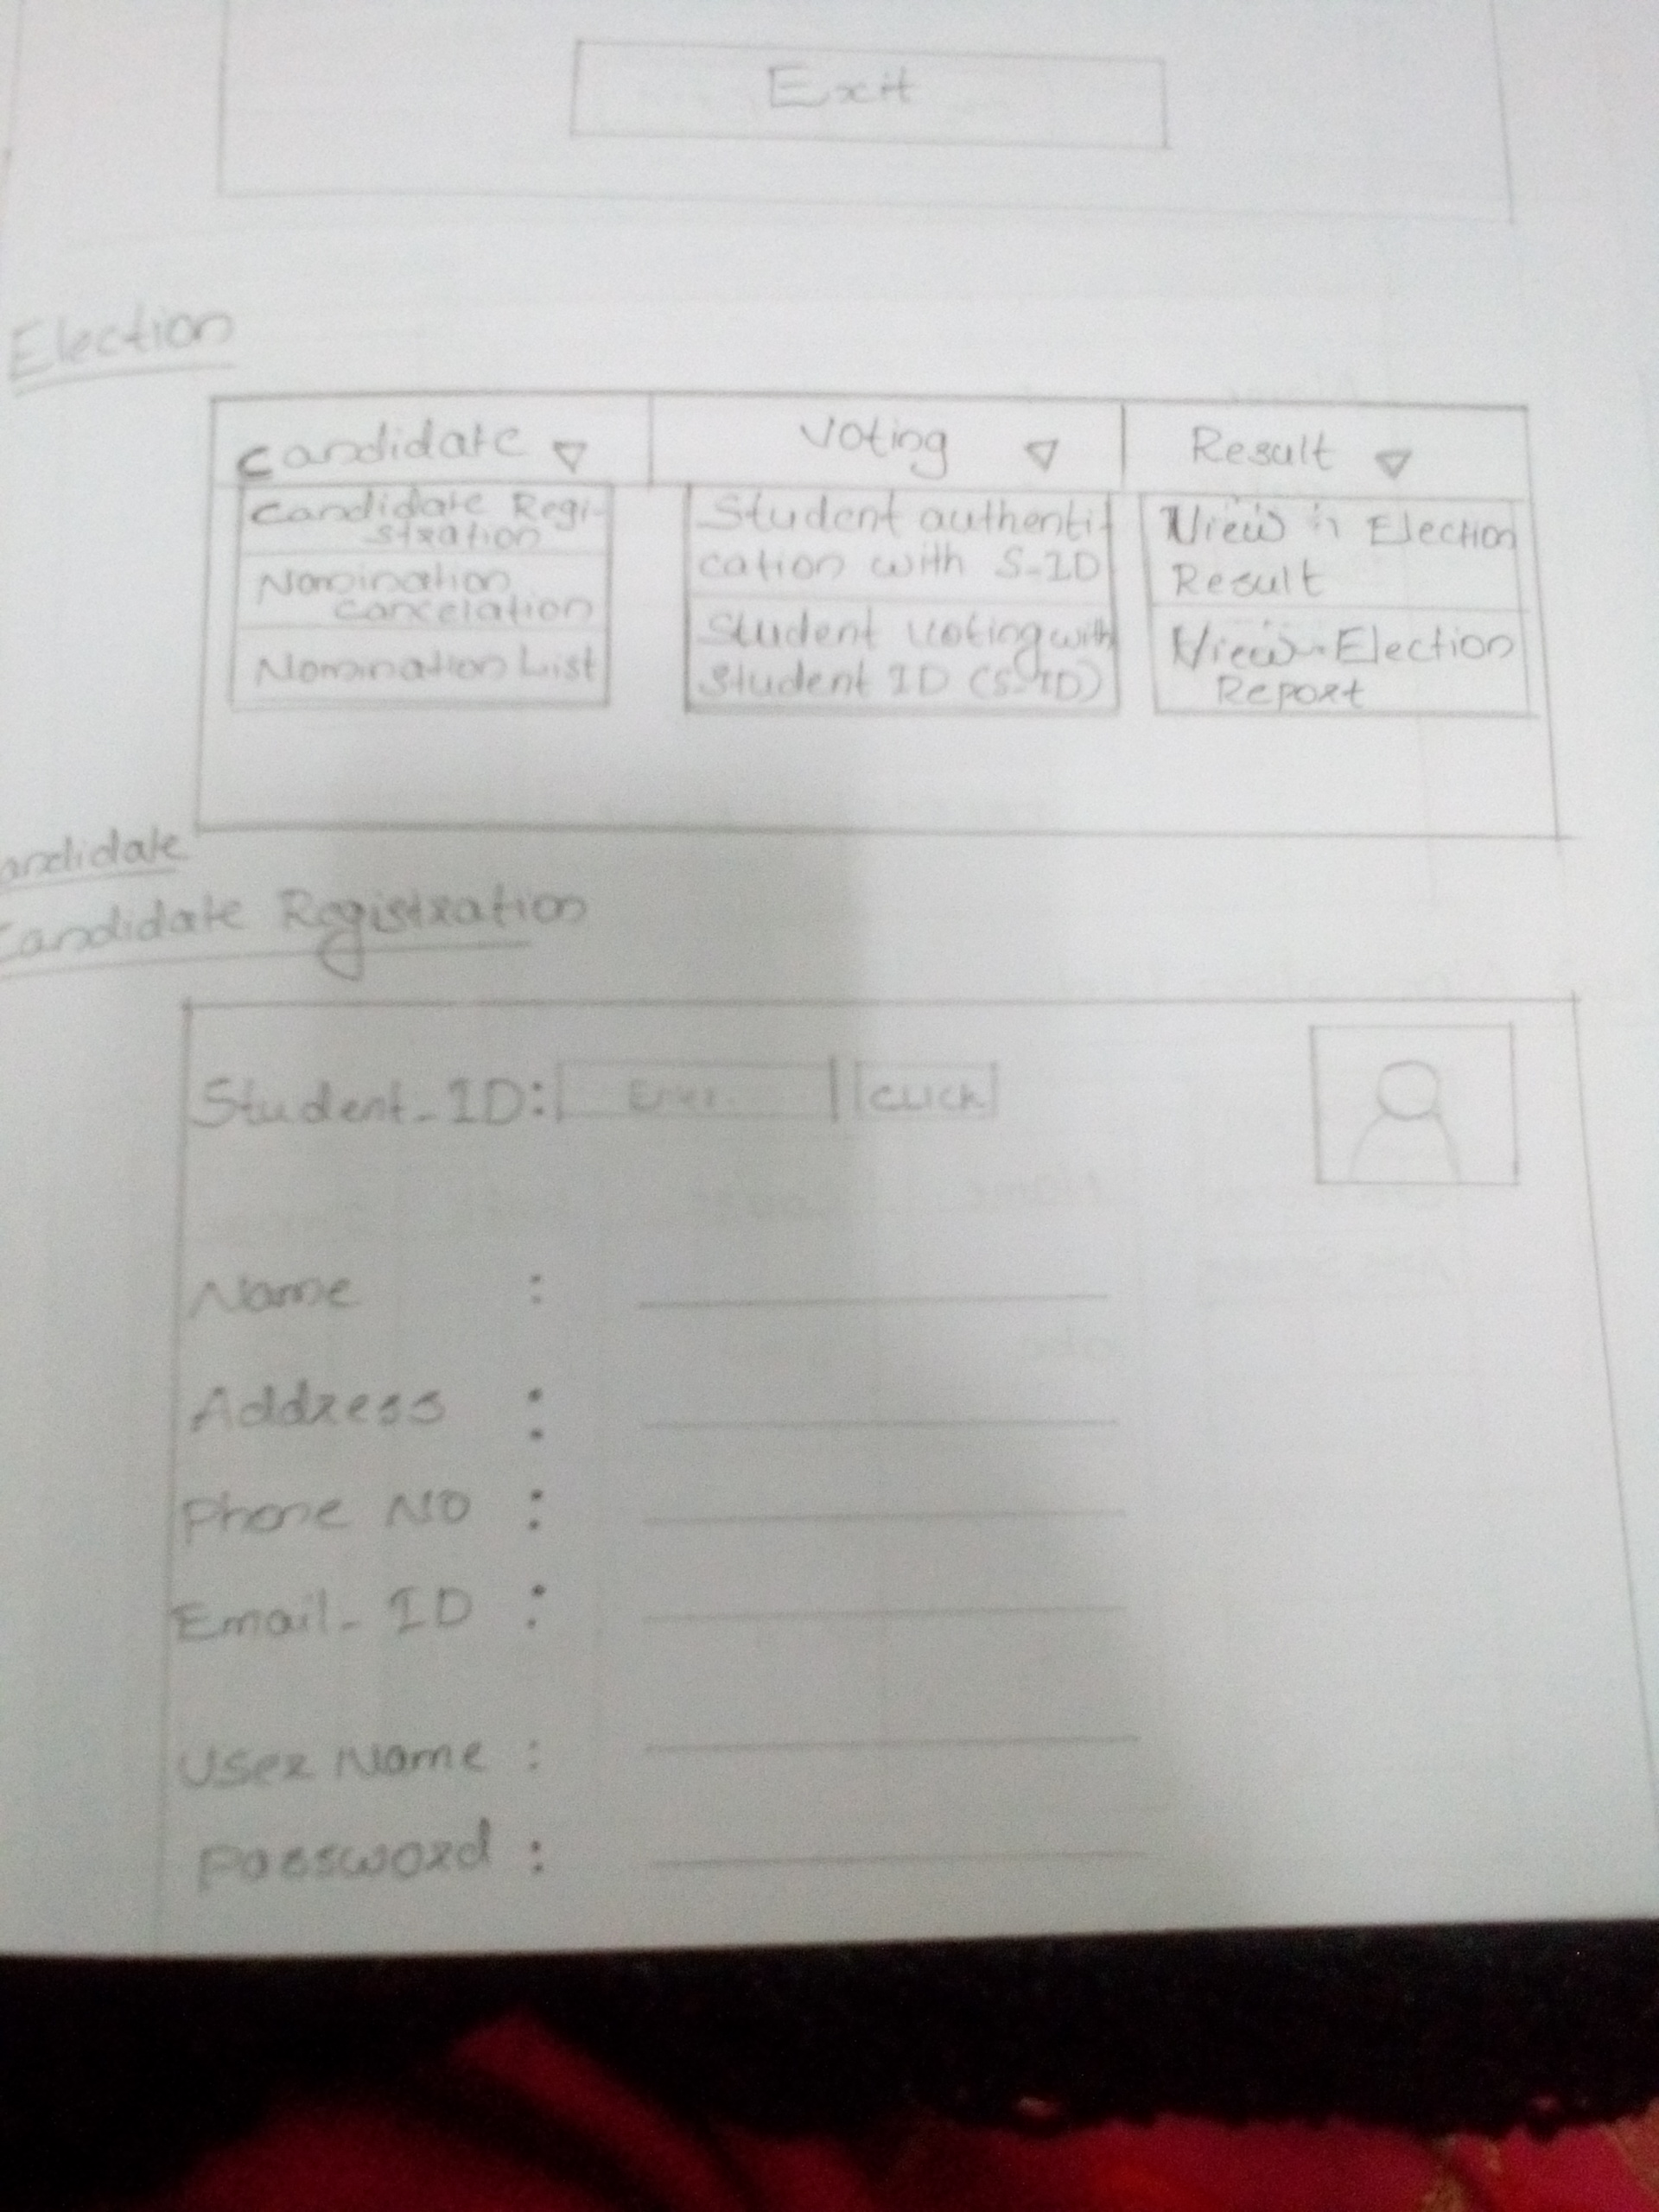 Exit
Election
Candidate Voting Result
Candidate Regi-
stration
Nomination
cancelation
Nomination List
Student authenti
cation with S-ID
Student voting with
Student ID (S-ID)
View Election
Result
View Election
Report
andidate
Candidate Registration
Student-ID: Enter Click
Name :
Address :
Phone NO :
Email-ID :
User Name :
Password :